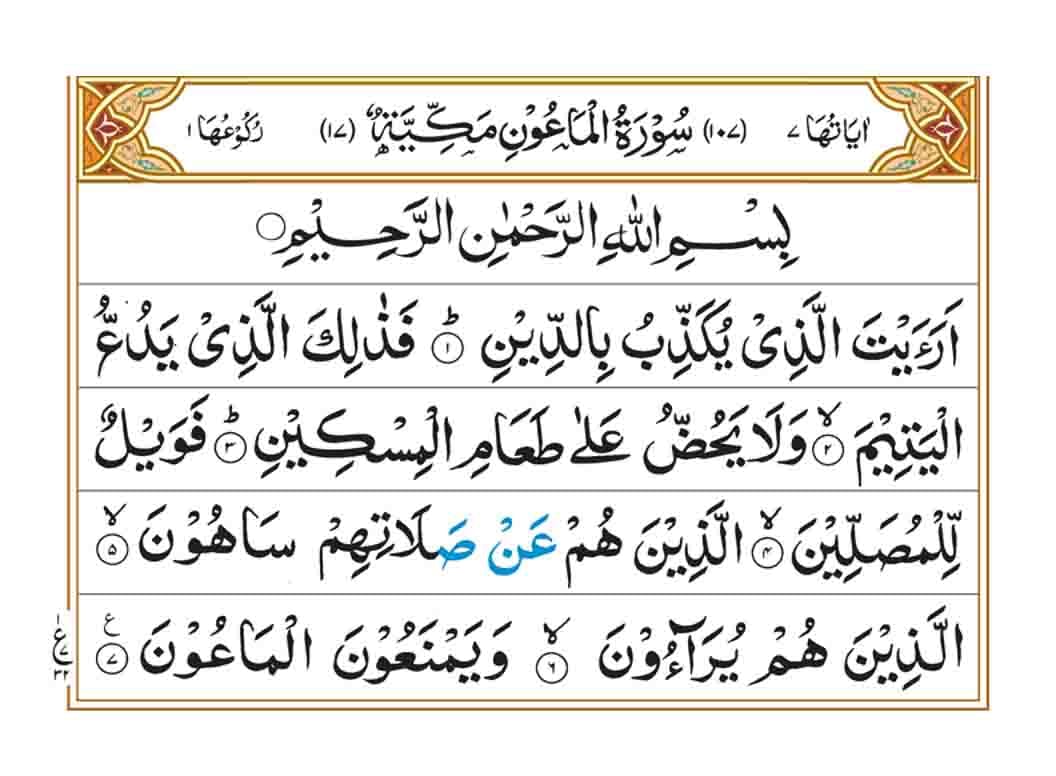 اٰيَاتُهَا ٧ (١٠٧) سُوْرَةُ الْمَاعُوْنِ مَكِّيَّةٌ (١٧) رُكُوْعُهَا ١
بِسْمِ اللّٰهِ الرَّحْمٰنِ الرَّحِيْمِ ○
اَرَءَيْتَ الَّذِىْ يُكَذِّبُ بِالدِّيْنِ ؕ ١ فَذٰلِكَ الَّذِىْ يَدُعُّ
الْيَتِيْمَ ۙ ٢ وَلَا يَحُضُّ عَلٰى طَعَامِ الْمِسْكِيْنِ ؕ ٣ فَوَيْلٌ
لِّلْمُصَلِّيْنَ ۙ ٤ الَّذِيْنَ هُمْ عَنْ صَلَاتِهِمْ سَاهُوْنَ ۙ ٥
الَّذِيْنَ هُمْ يُرَآءُوْنَ ۙ ٦ وَيَمْنَعُوْنَ الْمَاعُوْنَ ع ٧
١
ع
٧
٣٢